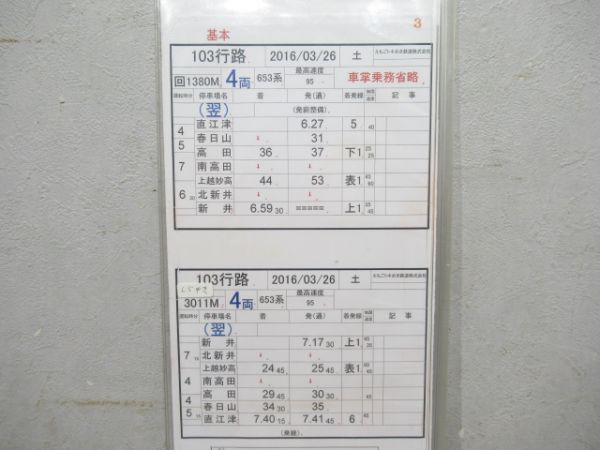 3
基本
103行路 2016/03/26 土 えちごトキめき鉄道株式会社
回1380M 4両 653系 最高速度 95 車掌乗務省略
運転時分 停車場名 着 発(通) 着発線 制限速度 記事
(翌) (発前整備)
4 直江津 6.27 5 40
5 春日山 ↓ 31
高田 36 37 下1 25 25
7 南高田 ↓ ↓
上越妙高 44 53 表1
6 30 北新井 ↓ ↓
新井 6.59 30 ===== 上1
103行路 2016/03/26 土 えちごトキめき鉄道株式会社
3011M 4両 653系 最高速度 95
運転時分 停車場名 着 発(通) 着発線 制限速度 記事
(翌)
新井 7.17 30 上1
7 15 北新井 ↓ ↓
上越妙高 24 45 25 45 表1
4 南高田 ↓ ↓
高田 29 45 30 30
4 春日山 34 30 35
5 15 直江津 7.40 15 7.41 45 6 45